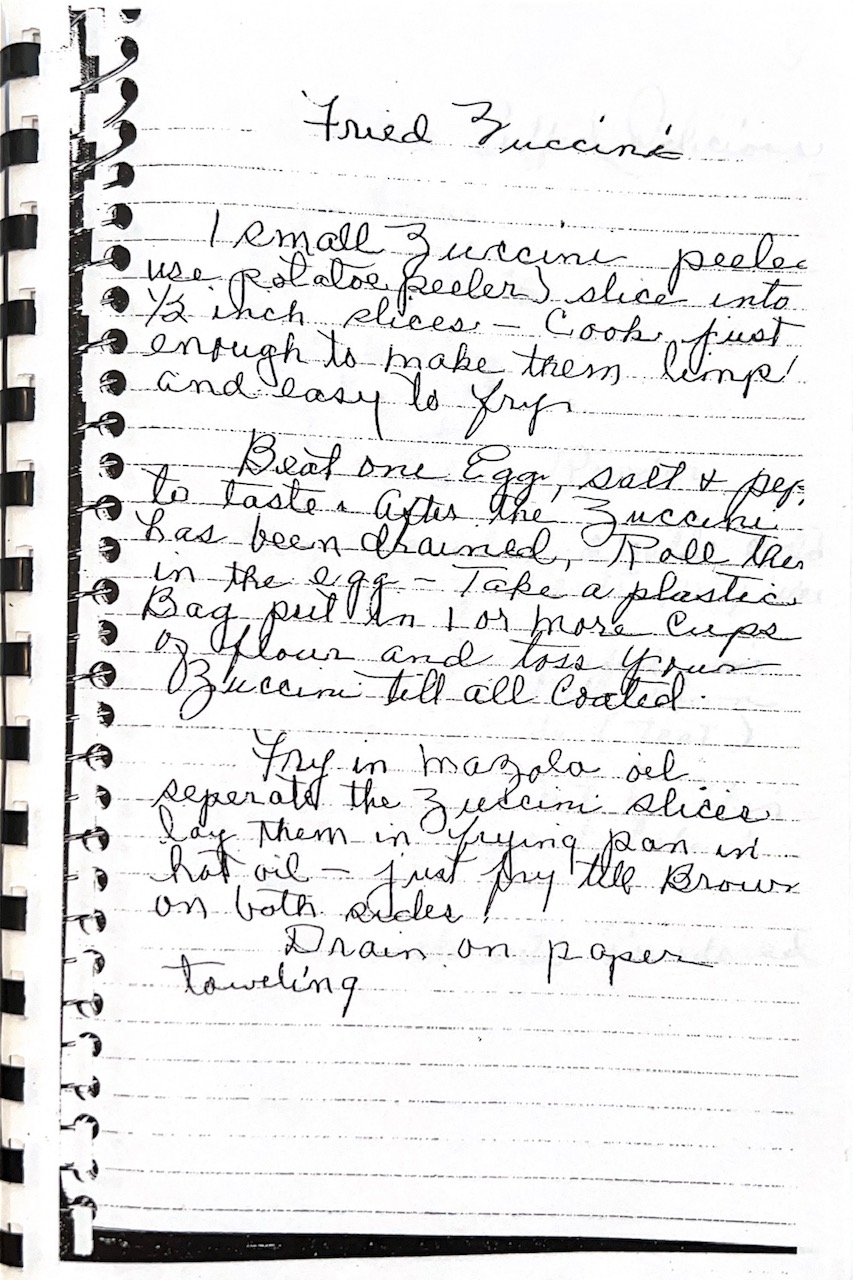 Fried Zuccini
1 small Zuccini peele
use potatoe peeler) slice into
1/2 inch slices - Cook just
enough to make them limp
and easy to fry.
Beat one Egg, salt & pep
to taste. After the Zuccini
has been drained, Roll the
in the egg - Take a plastic
Bag put in 1 or more Cups
of flour and toss your
Zuccini till all Coated.
Fry in Mazola oil
seperate the Zuccini slices
lay them in frying pan in
hot oil - just fry till Brown
on both sides.
Drain on paper
toweling